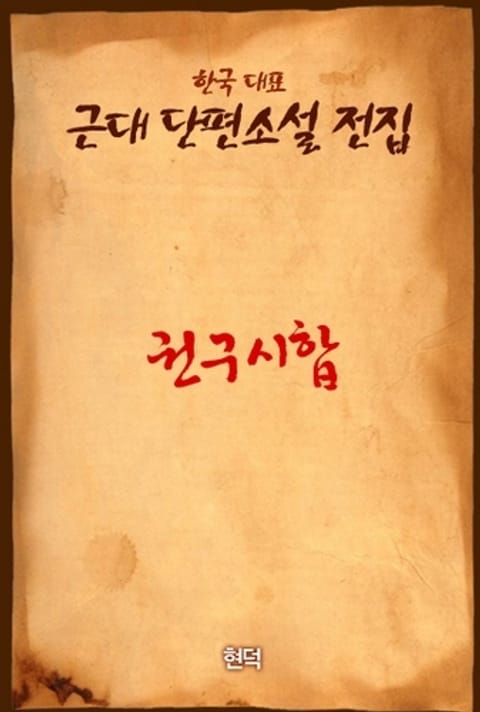 한국 대표
근대 단편소설 전집
권구시합
현덕